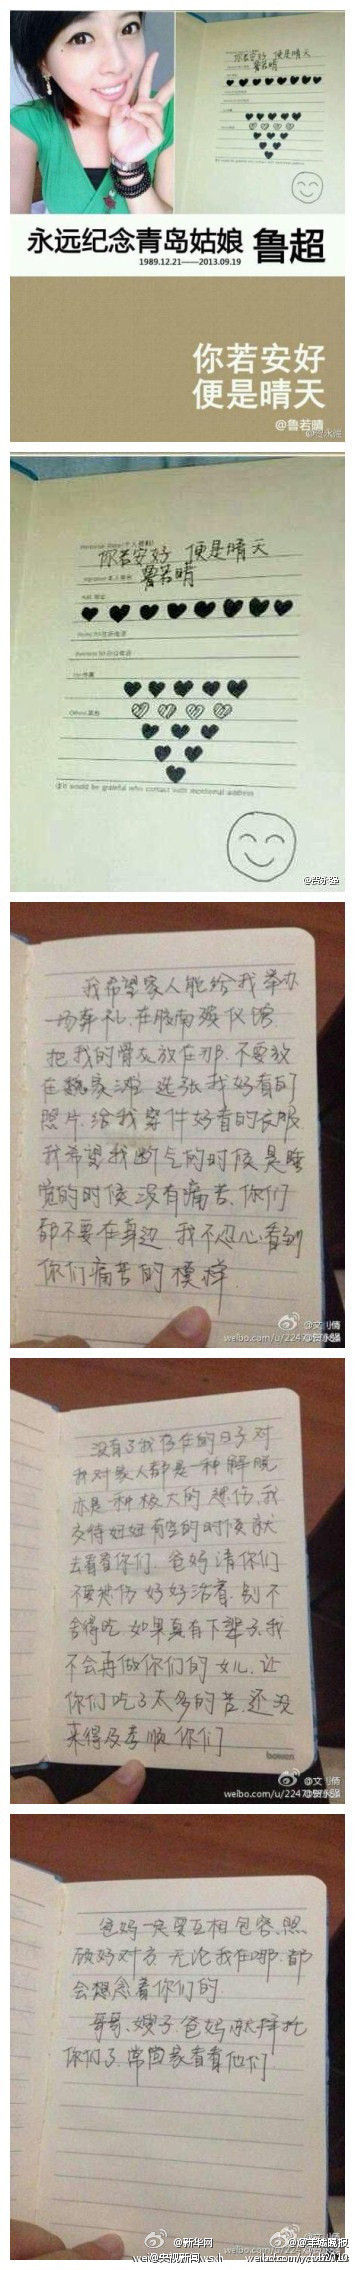 你若安好 便是晴天
鲁若晴
永远纪念青岛姑娘 鲁超
1989.12.21——2013.09.19
你若安好
便是晴天
@鲁若晴
你若安好 便是晴天
鲁若晴
@贺永强
我希望家人能给我举办
一场葬礼.在胶南殡仪馆
把我的骨灰放在那.不要放
在魏家滩 选张我好看的
照片.给我穿件好看的衣服
我希望我断气的时候是睡
觉的时候 没有痛苦.你们
都不要在身边 我不忍心看到
你们痛苦的模样
没有了我存在的日子.对
我对家人都是一种解脱
亦是一种极大的悲伤.我
交待妞妞有空的时候就
去看看你们. 爸妈请你们
不要悲伤 好好活着.别不
舍得吃.如果真有下辈子.我
不会再做你们的女儿.让
你们吃了太多的苦.还没
来得及孝顺你们
bowen
爸妈一定要互相包容.照
顾好对方 无论我在哪.都
会想念着你们的.
哥哥、嫂子.爸妈就拜托
你们了.常回家看看他们
@新华网
@羊城晚报